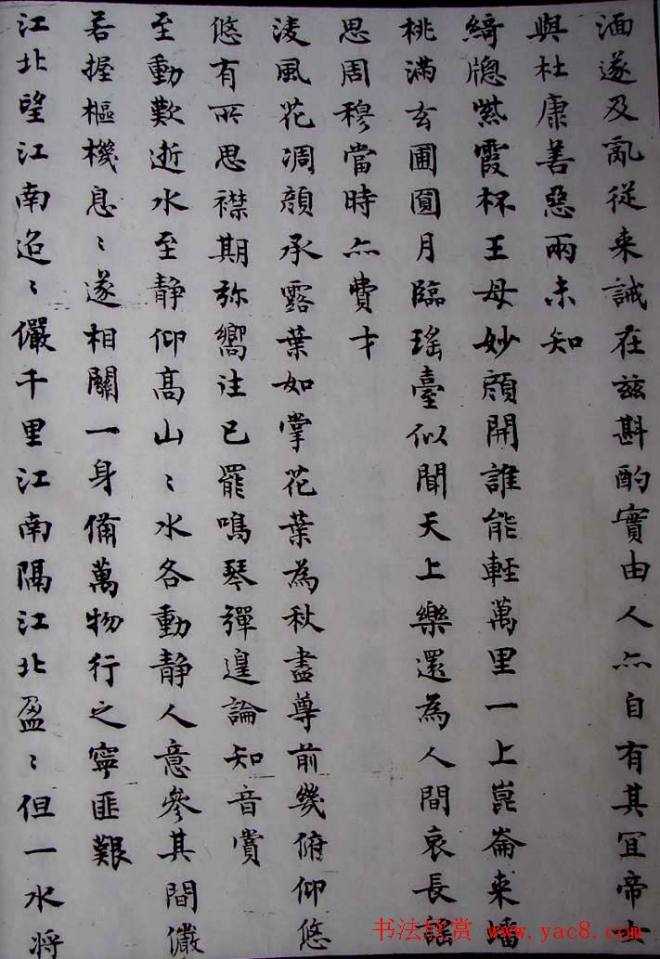 湎遂及亂従来誡在兹斟酌實由人亦自有其冝帝女
與杜康善惡兩未知
綺牕紫霞杯王母妙顔開誰能輕萬里一上崑崙来蟠
桃滿玄圃圓月臨瑤臺似聞天上樂還為人間哀長謡
思周穆當時亦費才
淩風花凋顔承露葉如掌花葉為秋盡尊前幾俯仰悠
悠有所思襟期弥嚮注已罷鳴琴彈遑論知音賞
至動歎逝水至静仰髙山〻水各動静人意參其間儼
若握樞機息〻遂相關一身備萬物行之寧匪艱
江北望江南迢〻儼千里江南隔江北盈〻但一水将
书法欣赏 www.yac8.com